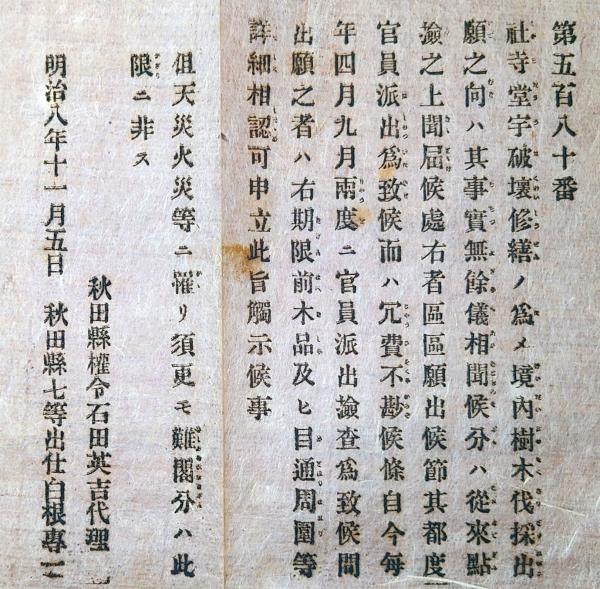 第五百八十番
社寺堂宇破壞修繕ノ爲メ境內樹木伐採出
願之向ハ其事實無餘儀相聞候分ハ從來點
撿之上聞届候處右者區區願出候節其都度
官員派出爲致候而ハ冗費不尠候條自今每
年四月九月兩度ニ官員派出撿查爲致候間
出願之者ハ右期限前木品及ヒ目通周圍等
詳細相認可申立此旨觸示候事
但天災火災等ニ罹リ須更モ難閣分ハ此
限ニ非ス
秋田縣權令石田英吉代理
明治八年十一月五日 秋田縣七等出仕白根專一